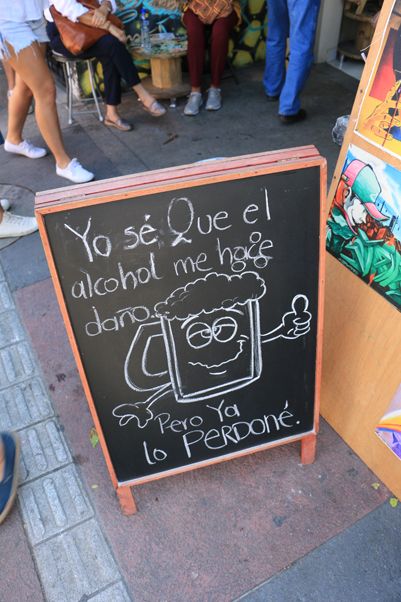 Yo sé Que el
alcohol me hace
daño..
Pero Ya
lo PERDONÉ.